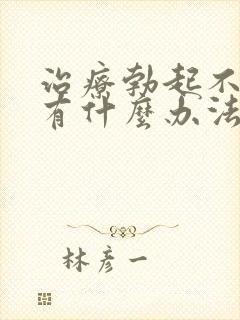 治療勃起不
有什麼办法
林彦一